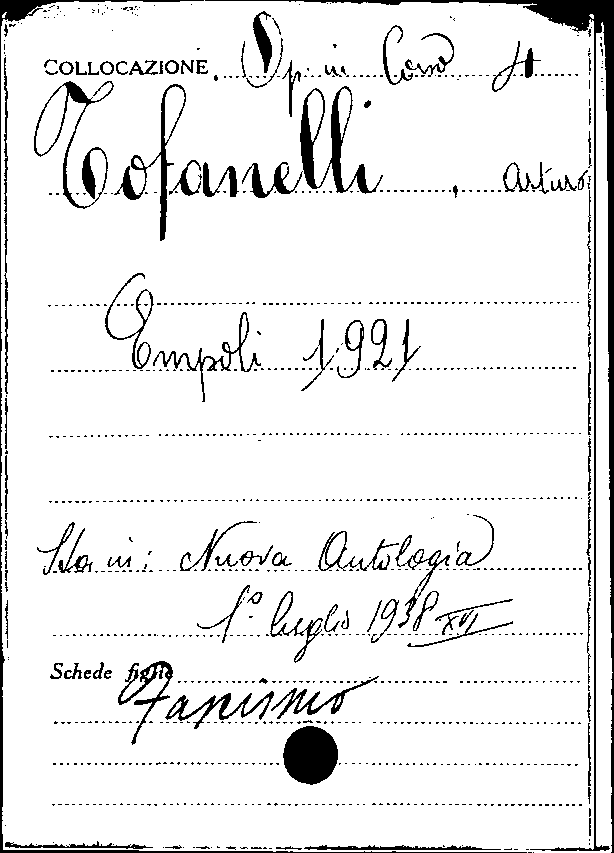 COLLOCAZIONE. Op. in Corso
Tofanelli, Arturo
Empoli 1921
Sta in: Nuova Antologia
1.º luglio 1938 XVI
Schede figlie
Fascismo